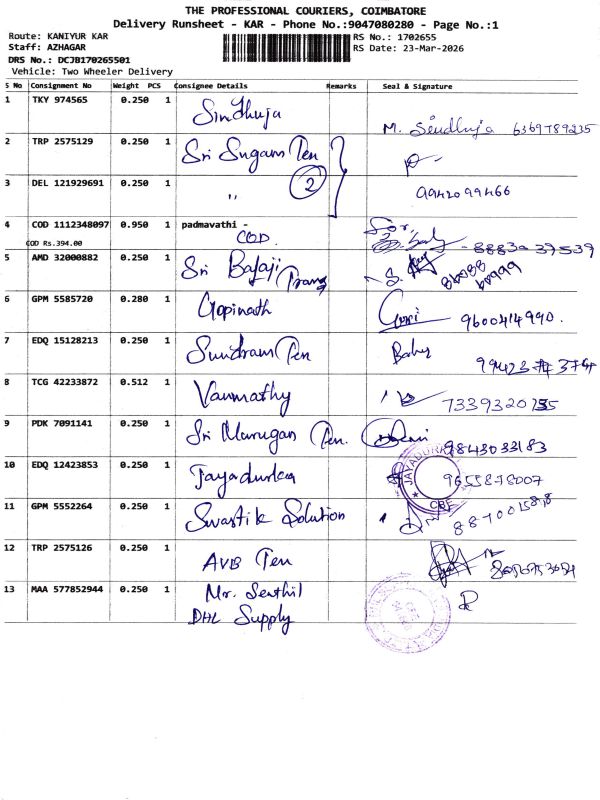 THE PROFESSIONAL COURIERS, COIMBATORE
Delivery Runsheet - KAR - Phone No.:9047080280 - Page No.:1
Route: KANIYUR KAR
RS No.: 1702655
Staff: AZHAGAR
RS Date: 23-Mar-2026
DRS No.: DCJB170265501
Vehicle: Two Wheeler Delivery
S No Consignment No Weight PCS Consignee Details Remarks Seal & Signature
1 TKY 974565 0.250 1 Sindhuja M. Sindhuja 6369789235
2 TRP 2575129 0.250 1 Sri Sugam Ten
3 DEL 121929691 0.250 1 " 2 9942099466
4 COD 1112348097 0.950 1 padmavathi - COD
COD Rs.394.00
5 AMD 32000882 0.250 1 Sri Balaji Trans
6 GPM 5585720 0.280 1 Gopinath Gopi 9600414990.
7 EDQ 15128213 0.250 1 Sundram Ten
8 TCG 42233872 0.512 1 Vanmathy
9 PDK 7091141 0.250 1 Sri Murugan Ten. 9843033183
10 EDQ 12423853 0.250 1 Jayadurka 9655878007
11 GPM 5552264 0.250 1 Swastik Solution
12 TRP 2575126 0.250 1 AVB Ten
13 MAA 577852944 0.250 1 Mr. Senthil
DHL Supply